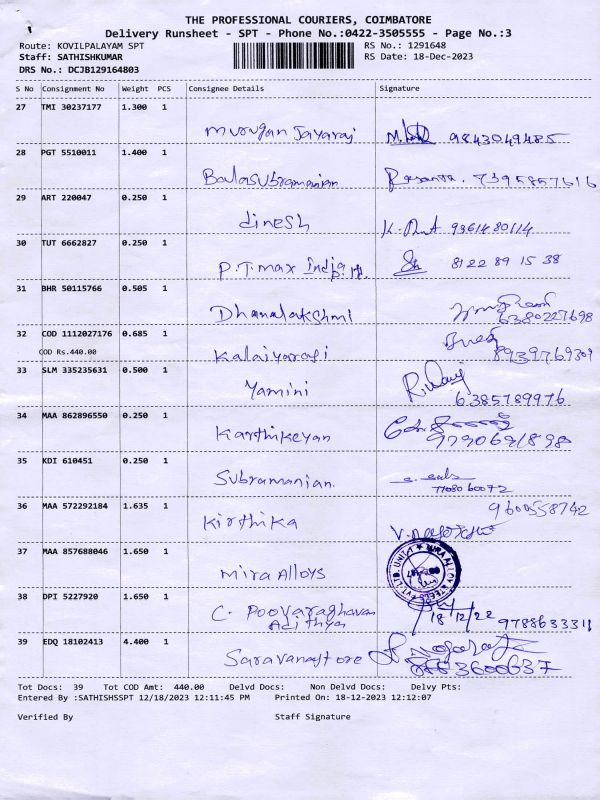 THE PROFESSIONAL COURIERS, COIMBATORE
Delivery Runsheet - SPT - Phone No.:0422-3505555 - Page No.:3
Route: KOVILPALAYAM SPT RS No.: 1291648
Staff: SATHISHKUMAR RS Date: 18-Dec-2023
DRS No.: DCJB129164803
S No Consignment No Weight PCS Consignee Details Signature
27 TMI 30237177 1.300 1
Murugan Jayaraj 9843049485
28 PGT 5510011 1.400 1
Balasubramanian 7395857616
29 ART 220047 0.250 1
dinesh 9361480114
30 TUT 6662827 0.250 1
P.T.max India 8122 89 15 38
31 BHR 50115766 0.505 1
Dhanalakshmi 6380227698
32 COD 1112027176 0.685 1
COD Rs.440.00
Kalaiyarasi 8939769309
33 SLM 335235631 0.500 1
Yamini 6385789976
34 MAA 862896550 0.250 1
Karthikeyan 9790691898
35 KDI 610451 0.250 1
Subramanian. 7708060072
36 MAA 572292184 1.635 1
Kirthika 9600558742
37 MAA 857688046 1.650 1
Mira Alloys
38 DPI 5227920 1.650 1
C. Poovaraghavan 18/12/22 9788633311
Adithya
39 EDQ 18102413 4.400 1
Saravanastore
Tot Docs: 39 Tot COD Amt: 440.00 Delvd Docs: Non Delvd Docs: Delvy Pts:
Entered By :SATHISHSSPT 12/18/2023 12:11:45 PM Printed On: 18-12-2023 12:12:07
Verified By Staff Signature